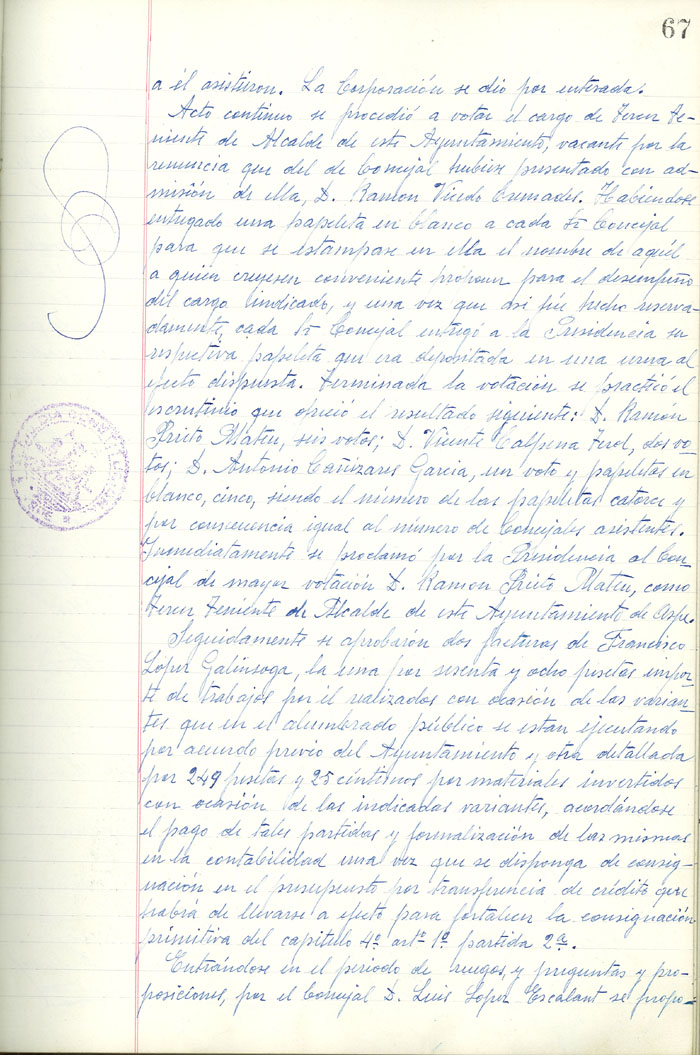 67
a él asistieron. La Corporación se dió por enterada.
Acto continuo se procedió a votar el cargo de Tercer Te-
niente de Alcalde de este Ayuntamiento, vacante por la
renuncia que del de Concejal hubiese presentado con ad-
misión de ella, D. Ramon Vicedo Cremades. Habiendose
entregado una papeleta en blanco a cada Sr Concejal
para que se estampase en ella el nombre de aquél
a quién creyesen conveniente proponer para el desempeño
dél cargo indicado, y una vez que asi fué hecho reserva-
damente, cada Sr Concejal entregó a la Presidencia su
respectiva papeleta que era depositada en una urna al
efecto dispuesta. Terminada la votación se practicó el
escrutinio que ofreció el resultado siguiente: D. Ramon
Prieto Mateu, seis votos; D. Vicente Calpena Ferol, dos vo-
tos; D. Antonio Cañizares Garcia, un voto y papeletas en
blanco, cinco, siendo el número de las papeletas catorce y
por consecuencia igual al número de Concejales asistentes.
Inmediatamente se proclamó por la Presidencia al Con-
cejal de mayor votación D. Ramon Prieto Mateu, como
Tercer Teniente de Alcalde de este Ayuntamiento de Aspe.
Seguidamente se aprobarón dos facturas de Francisco
López Galinsoga, la una por sesenta y ocho pesetas impor-
te de trabajos por él realizados con ocasión de las varian-
tes que en el alumbrado público se estan ejecutando
por acuerdo previo del Ayuntamiento y otra detallada
por 249 pesetas y 25 céntimos por materiales invertidos
con ocasión de las indicadas variantes, acordándose
el pago de tales partidas y formalización de las mismas
en la contabilidad una vez que se disponga de consig-
nación en el presupuesto por transferencia de crédito que
habrá de llevarse a efecto para fortalecer la consignación
primitiva del capitulo 4º artº 1º partida 2ª.
Entrándose en el periodo de ruegos, y preguntas y pro-
posiciones, por el Concejal D. Luis López Escalant se propo-